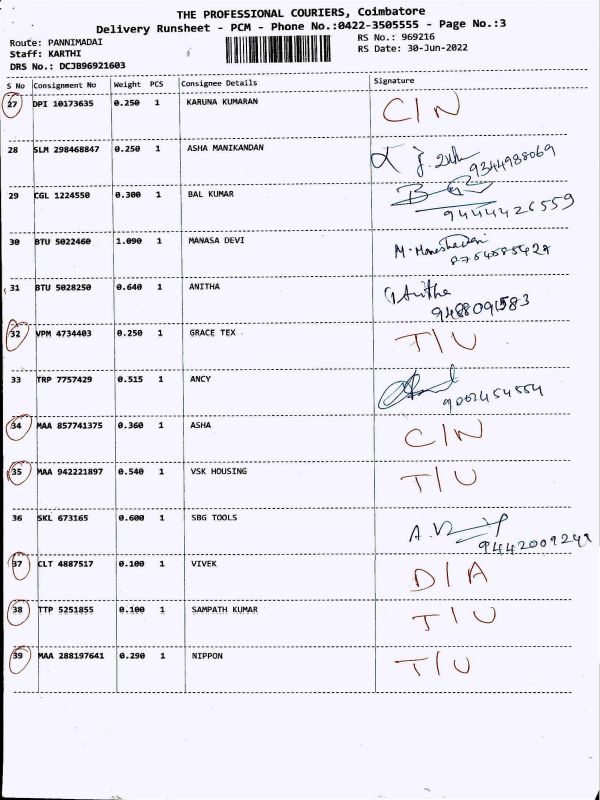 THE PROFESSIONAL COURIERS, Coimbatore
Delivery Runsheet - PCM - Phone No.:0422-3505555 - Page No.:3
Route: PANNIMADAI RS No.: 969216
Staff: KARTHI RS Date: 30-Jun-2022
DRS No.: DCJB96921603
S No Consignment No Weight PCS Consignee Details Signature
27 DPI 10173635 0.250 1 KARUNA KUMARAN C/N
28 SLM 298468847 0.250 1 ASHA MANIKANDAN
9344988069
29 CGL 1224550 0.300 1 BAL KUMAR
9444426559
30 BTU 5022460 1.090 1 MANASA DEVI
8754085429
31 BTU 5028250 0.640 1 ANITHA Anitha
9488091583
32 VPM 4734403 0.250 1 GRACE TEX T/U
33 TRP 7757429 0.515 1 ANCY
9002454554
34 MAA 857741375 0.360 1 ASHA C/N
35 MAA 942221897 0.540 1 VSK HOUSING T/U
36 SKL 673165 0.600 1 SBG TOOLS
37 CLT 4887517 0.100 1 VIVEK D/A
38 TTP 5251855 0.100 1 SAMPATH KUMAR T/U
39 MAA 288197641 0.290 1 NIPPON T/U